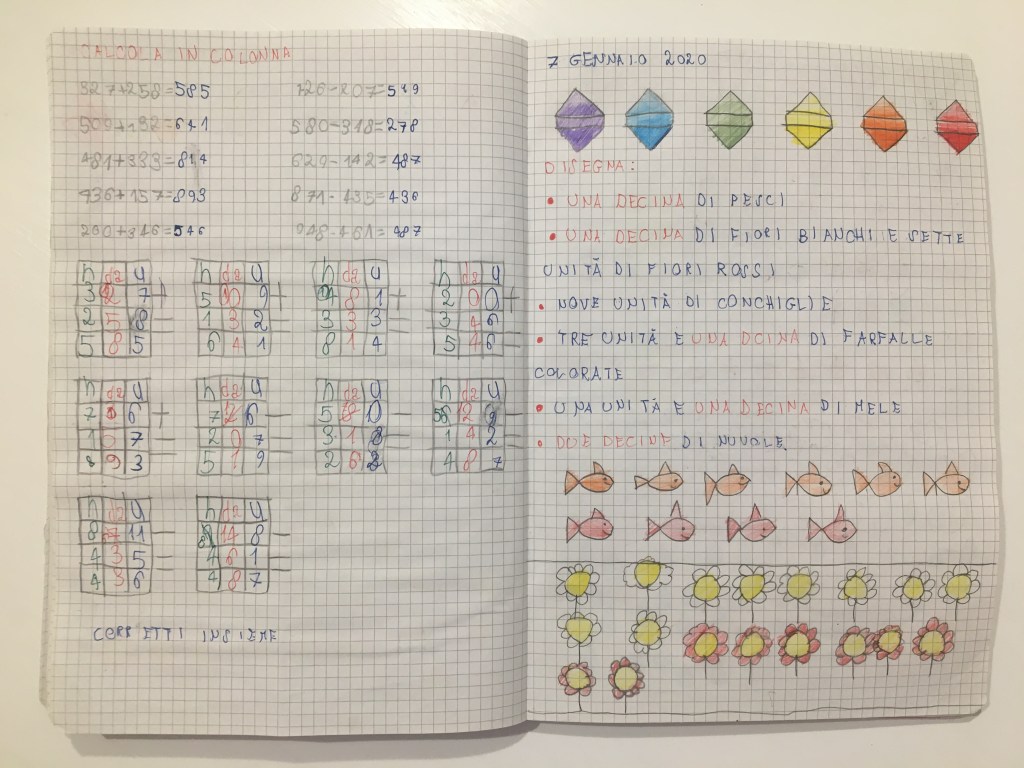 CALCOLA IN COLONNA
327+258=585
726-207=519
509+132=641
580-318=278
481+333=814
629-142=487
436+157=893
871-435=436
200+346=546
948-461=487
h da u
3 2 7 +
2 5 8 =
5 8 5
h da u
5 0 9 +
1 3 2 =
6 4 1
h da u
4 8 1 +
3 3 3 =
8 1 4
h da u
2 0 0 +
3 4 6 =
5 4 6
h da u
7 8 6 +
1 0 7 =
8 9 3
h da u
7 2 6 -
2 0 7 =
5 1 9
h da u
5 8 0 -
3 1 8 =
2 6 2
h da u
12 9 -
1 4 2 =
4 8 7
h da u
8 7 11 -
4 3 5 =
4 3 6
h da u
14 8 -
4 6 1 =
4 8 7
CORRETTI INSIEME
7 GENNAIO 2020
DISEGNA:
• UNA DECINA DI PESCI
• UNA DECINA DI FIORI BIANCHI E SETTE
UNITÀ DI FIORI ROSSI
• NOVE UNITÀ DI CONCHIGLIE
• TRE UNITÀ E UNA DCINA DI FARFALLE
COLORATE
• UNA UNITÀ E UNA DECINA DI MELE
• DUE DECINE DI NUVOLE.